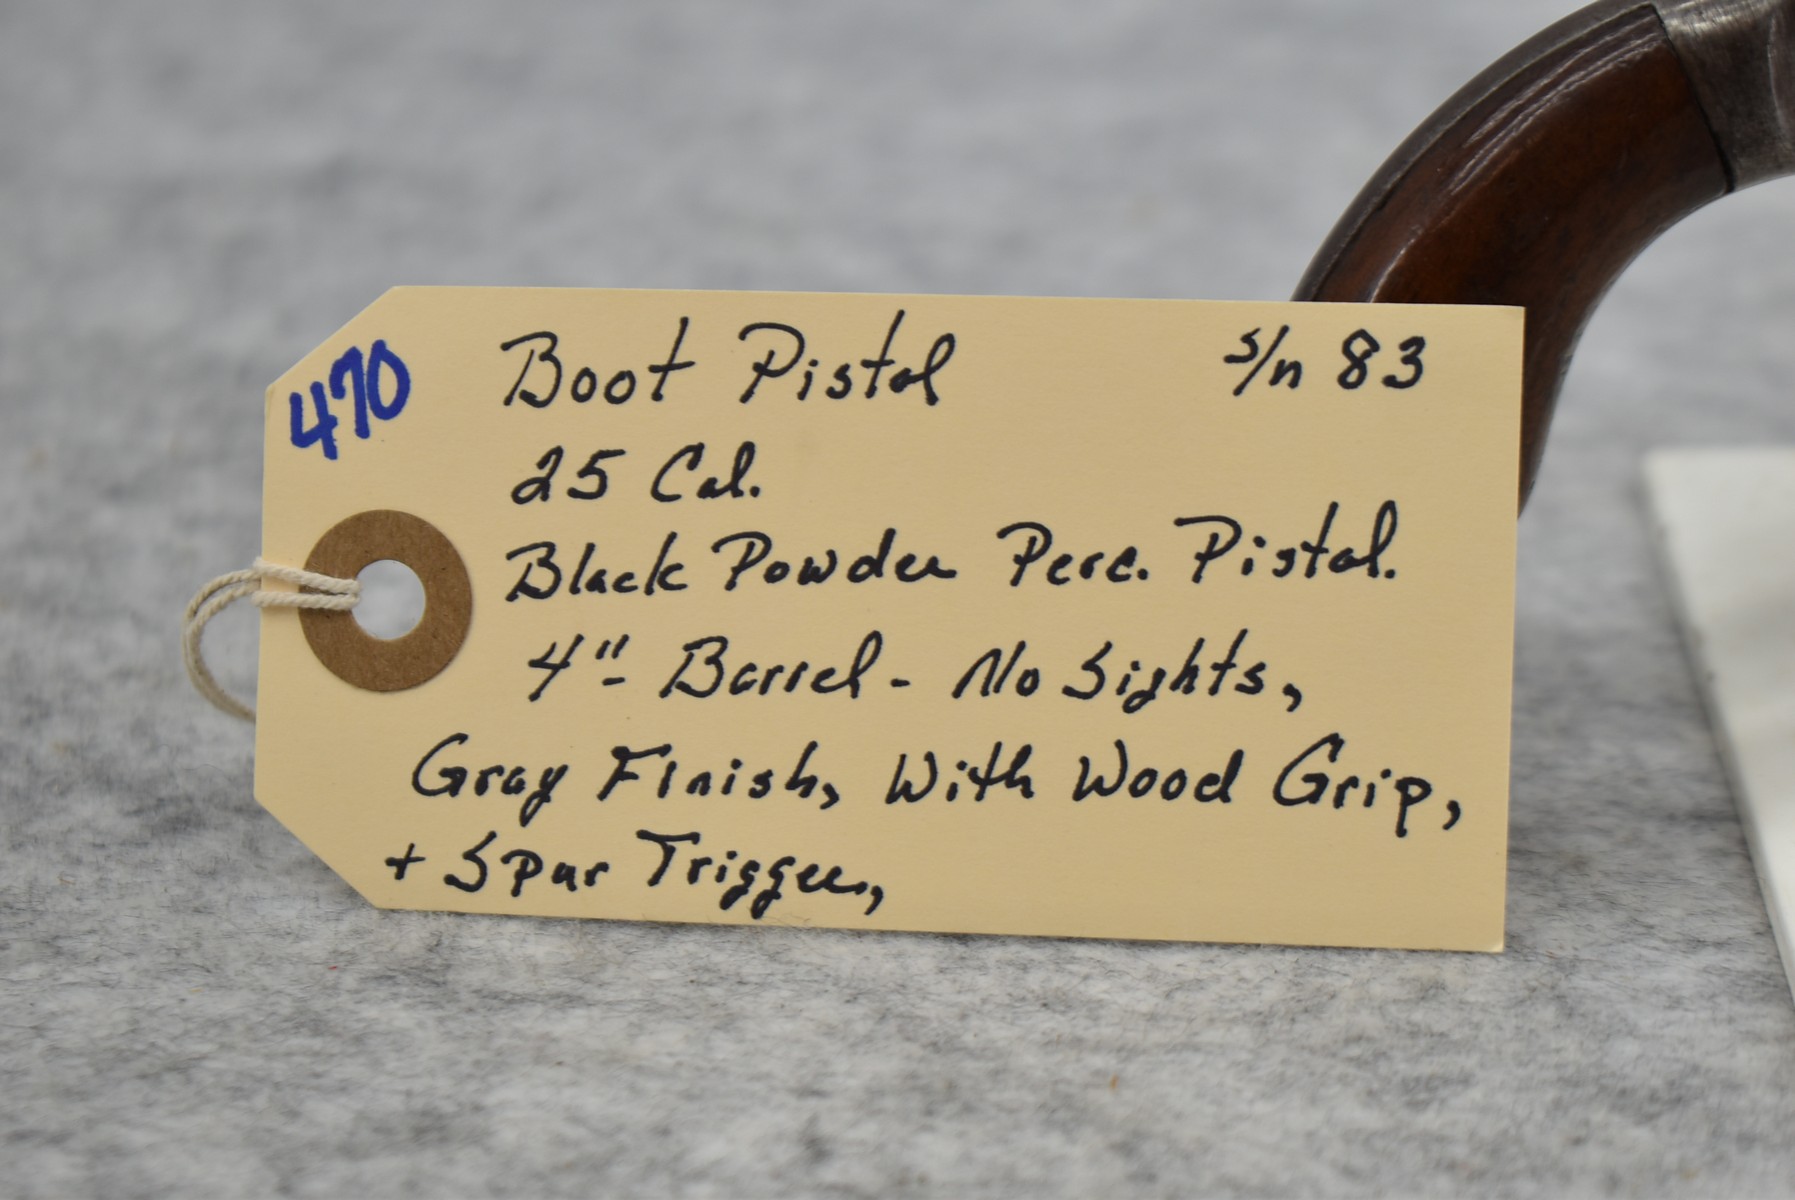 470
Boot Pistol s/n 83
25 Cal.
Black Powder Perc. Pistol.
4" Barrel - No Sights,
Gray Finish, With Wood Grip,
+ Spur Trigger,